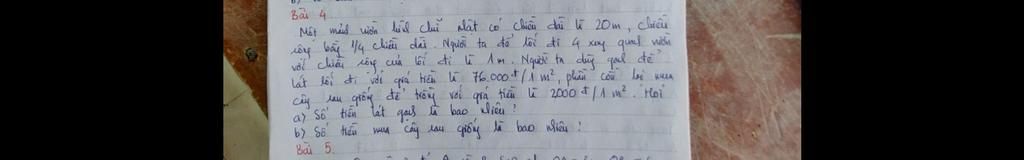 Bài 4
Một mảnh vườn hình chữ nhật có chiều dài là 20m, chiều
rộng bằng 1/4 chiều dài. Người ta để lối đi xung quanh vườn
với chiều rộng của lối đi là 1m. Người ta dùng gạch để
lát lối đi với giá tiền là 76.000đ/1m², phần còn lại mua
cây rau giống để trồng với giá tiền là 2000đ/1m². Hỏi
a) Số tiền lát gạch là bao nhiêu?
b) Số tiền mua cây rau giống là bao nhiêu?
Bài 5.